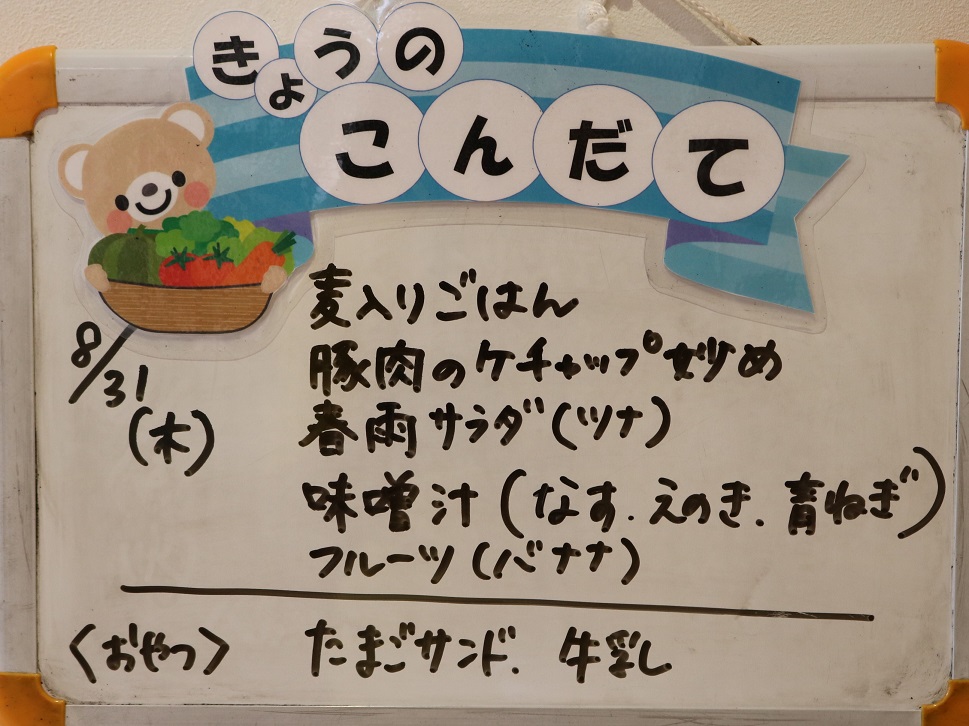 きょうの
こんだて
8/31
(木)
麦入りごはん
豚肉のケチャップ炒め
春雨サラダ(ツナ)
味噌汁(なす.えのき.青ねぎ)
フルーツ(バナナ)
〈おやつ〉 たまごサンド. 牛乳